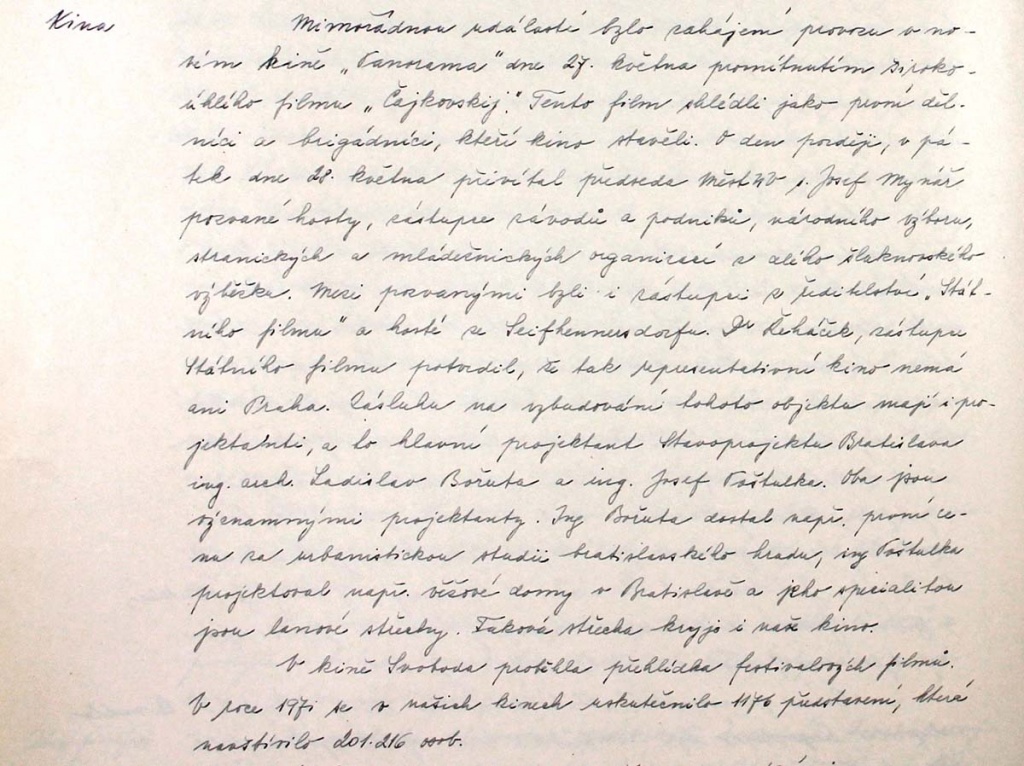 Kina
Mimořádnou událostí bylo zahájení provozu v no-
vém kině „Panorama" dne 27. května promítnutím široko-
úhlého filmu „Čajkovskij". Tento film shlédli jako první děl-
níci a brigádníci, kteří kino stavěli. O den později, v pá-
tek dne 28. května přivítal předseda MěstNV s. Josef Mynář
pozvané hosty, zástupce závodů a podniků, národního výboru,
stranických a mládežnických organizací z celého šluknovského
výběžku. Mezi pozvanými byli i zástupci z ředitelství „Stát-
ního filmu" a hosté ze Seifhennersdorfu. Dr Řeháček, zástupce
Státního filmu potvrdil, že tak representativní kino nemá
ani Praha. Zásluhu na vybudování tohoto objektu mají i pro-
jektanti, a to hlavní projektant Stavoprojektu Bratislava
ing. arch. Ladislav Bořuta a ing. Josef Poštulka. Oba jsou
významnými projektanty. Ing Bořuta dostal např. první ce-
nu za urbanistickou studii bratislavského hradu, ing Poštulka
projektoval např. věžové domy v Bratislavě a jeho specialitou
jsou lanové střechy. Taková střecha kryje i naše kino.
V kině Svoboda proběhla přehlídka festivalových filmů.
V roce 1971 se v našich kinech uskutečnilo 1176 představení, která
navštívilo 201.216 osob.